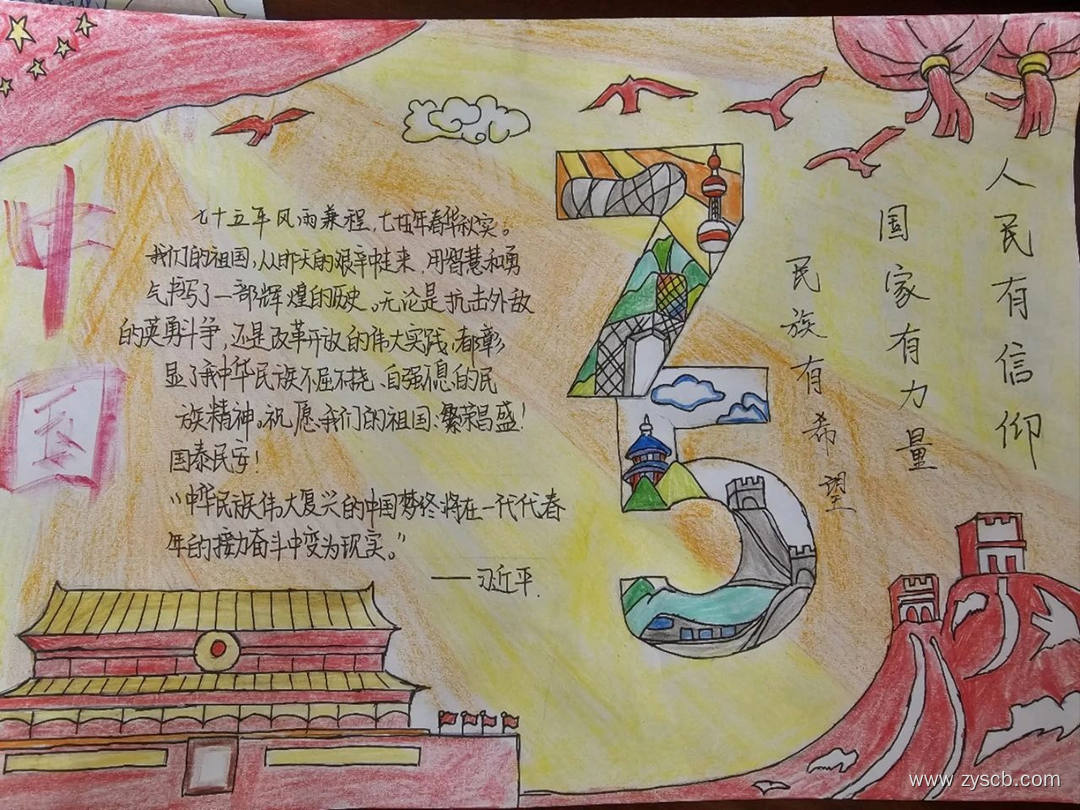 中国
七十五年风雨兼程，七五年春华秋实。
我们的祖国，从昨天的艰辛中走来，用智慧和勇
气书写了一部辉煌的历史。无论是抗击外敌
的英勇斗争，还是改革开放的伟大实践，都彰
显了我中华民族不屈不挠、自强不息的民
族精神。祝愿我们的祖国：繁荣昌盛！
国泰民安！
“中华民族伟大复兴的中国梦终将在一代代春
年的接力奋斗中变为现实。”
——习近平.
75
人民有信仰
国家有力量
民族有希望
www.zyscb.com